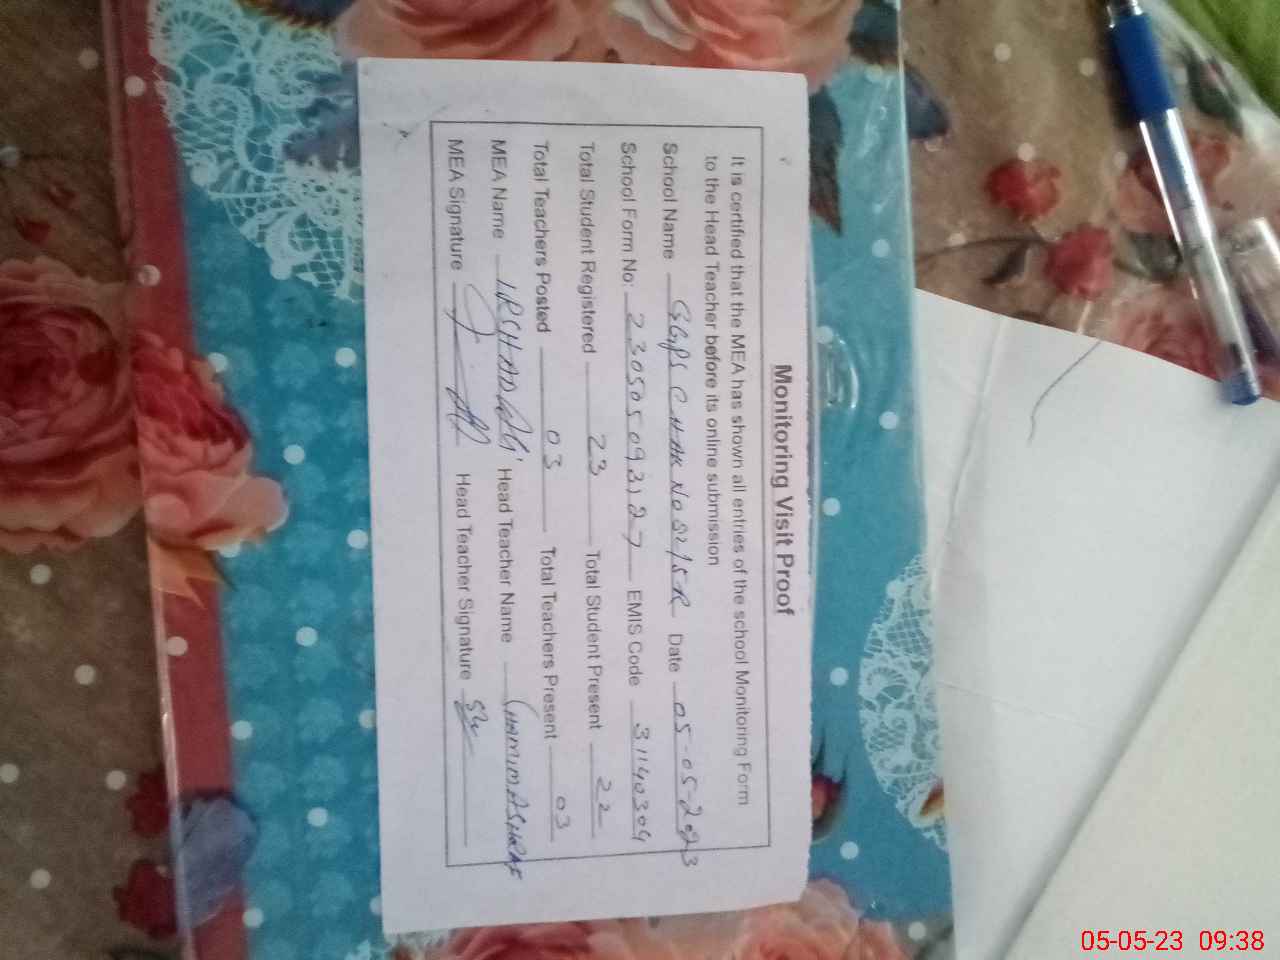 Monitoring Visit Proof
It is certified that the MEA has shown all entries of the school Monitoring Form
to the Head Teacher before its online submission
School Name GGPS CHAK NO 52/5R Date 05-05-2023
School Form No: 230505093127 EMIS Code 31140304
Total Student Registered 23 Total Student Present 22
Total Teachers Posted 03 Total Teachers Present 03
MEA Name IRSHAD ALI Head Teacher Name ASHRAF
MEA Signature Head Teacher Signature
05-05-23 09:38